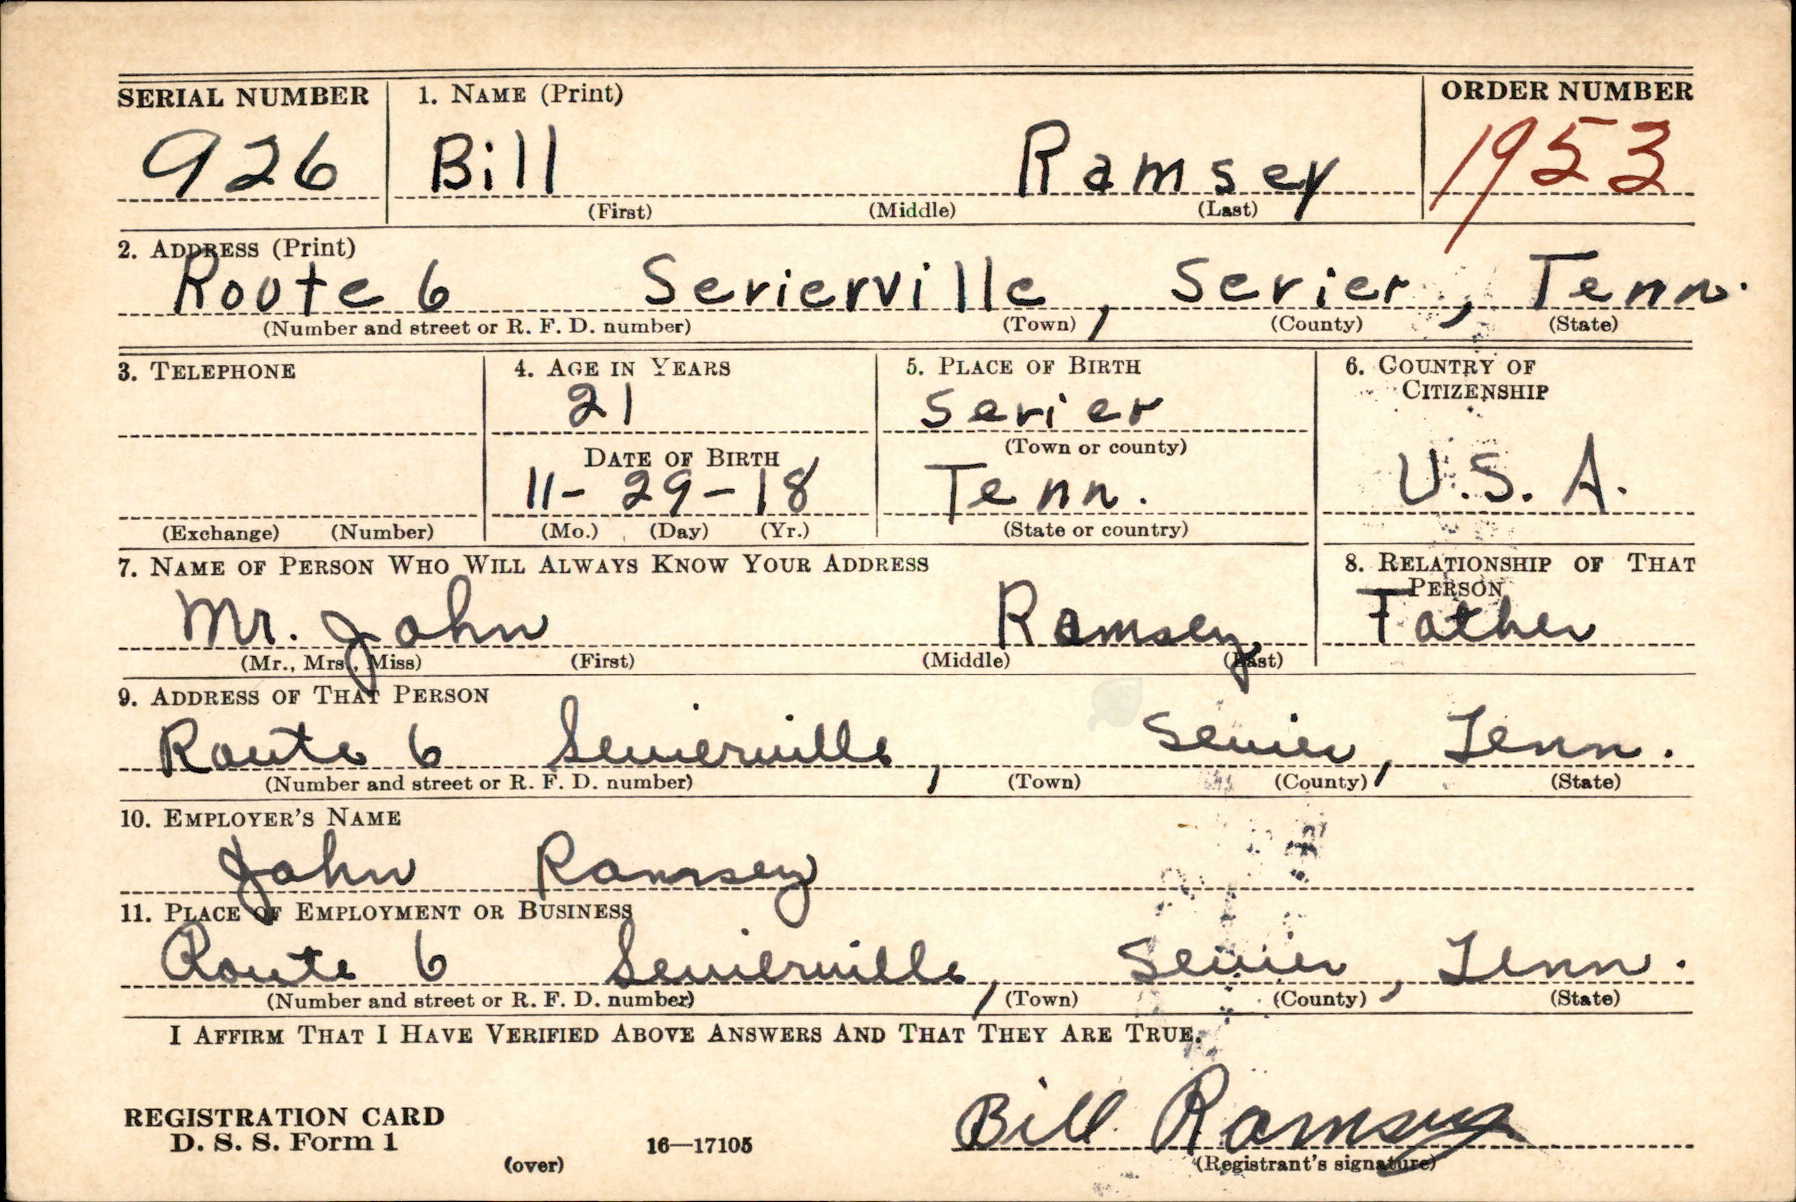 SERIAL NUMBER 1. NAME (Print) ORDER NUMBER
926 Bill Ramsey 1953
(First) (Middle) (Last)
2. ADDRESS (Print)
Route 6 Sevierville, Sevier, Tenn.
(Number and street or R. F. D. number) (Town) (County) (State)
3. TELEPHONE 4. AGE IN YEARS 5. PLACE OF BIRTH 6. COUNTRY OF
CITIZENSHIP
21 Sevier
(Town or county)
DATE OF BIRTH
11-29-18 Tenn. U.S.A.
(Exchange) (Number) (Mo.) (Day) (Yr.) (State or country)
7. NAME OF PERSON WHO WILL ALWAYS KNOW YOUR ADDRESS 8. RELATIONSHIP OF THAT
PERSON
Mr. John Ramsey Father
(Mr., Mrs., Miss) (First) (Middle) (Last)
9. ADDRESS OF THAT PERSON
Route 6 Sevierville, Sevier, Tenn.
(Number and street or R. F. D. number) (Town) (County) (State)
10. EMPLOYER'S NAME
John Ramsey
11. PLACE OF EMPLOYMENT OR BUSINESS
Route 6 Sevierville, Sevier, Tenn.
(Number and street or R. F. D. number) (Town) (County) (State)
I AFFIRM THAT I HAVE VERIFIED ABOVE ANSWERS AND THAT THEY ARE TRUE.
REGISTRATION CARD
D. S. S. Form 1 16—17105 Bill Ramsey
(over) (Registrant's signature)